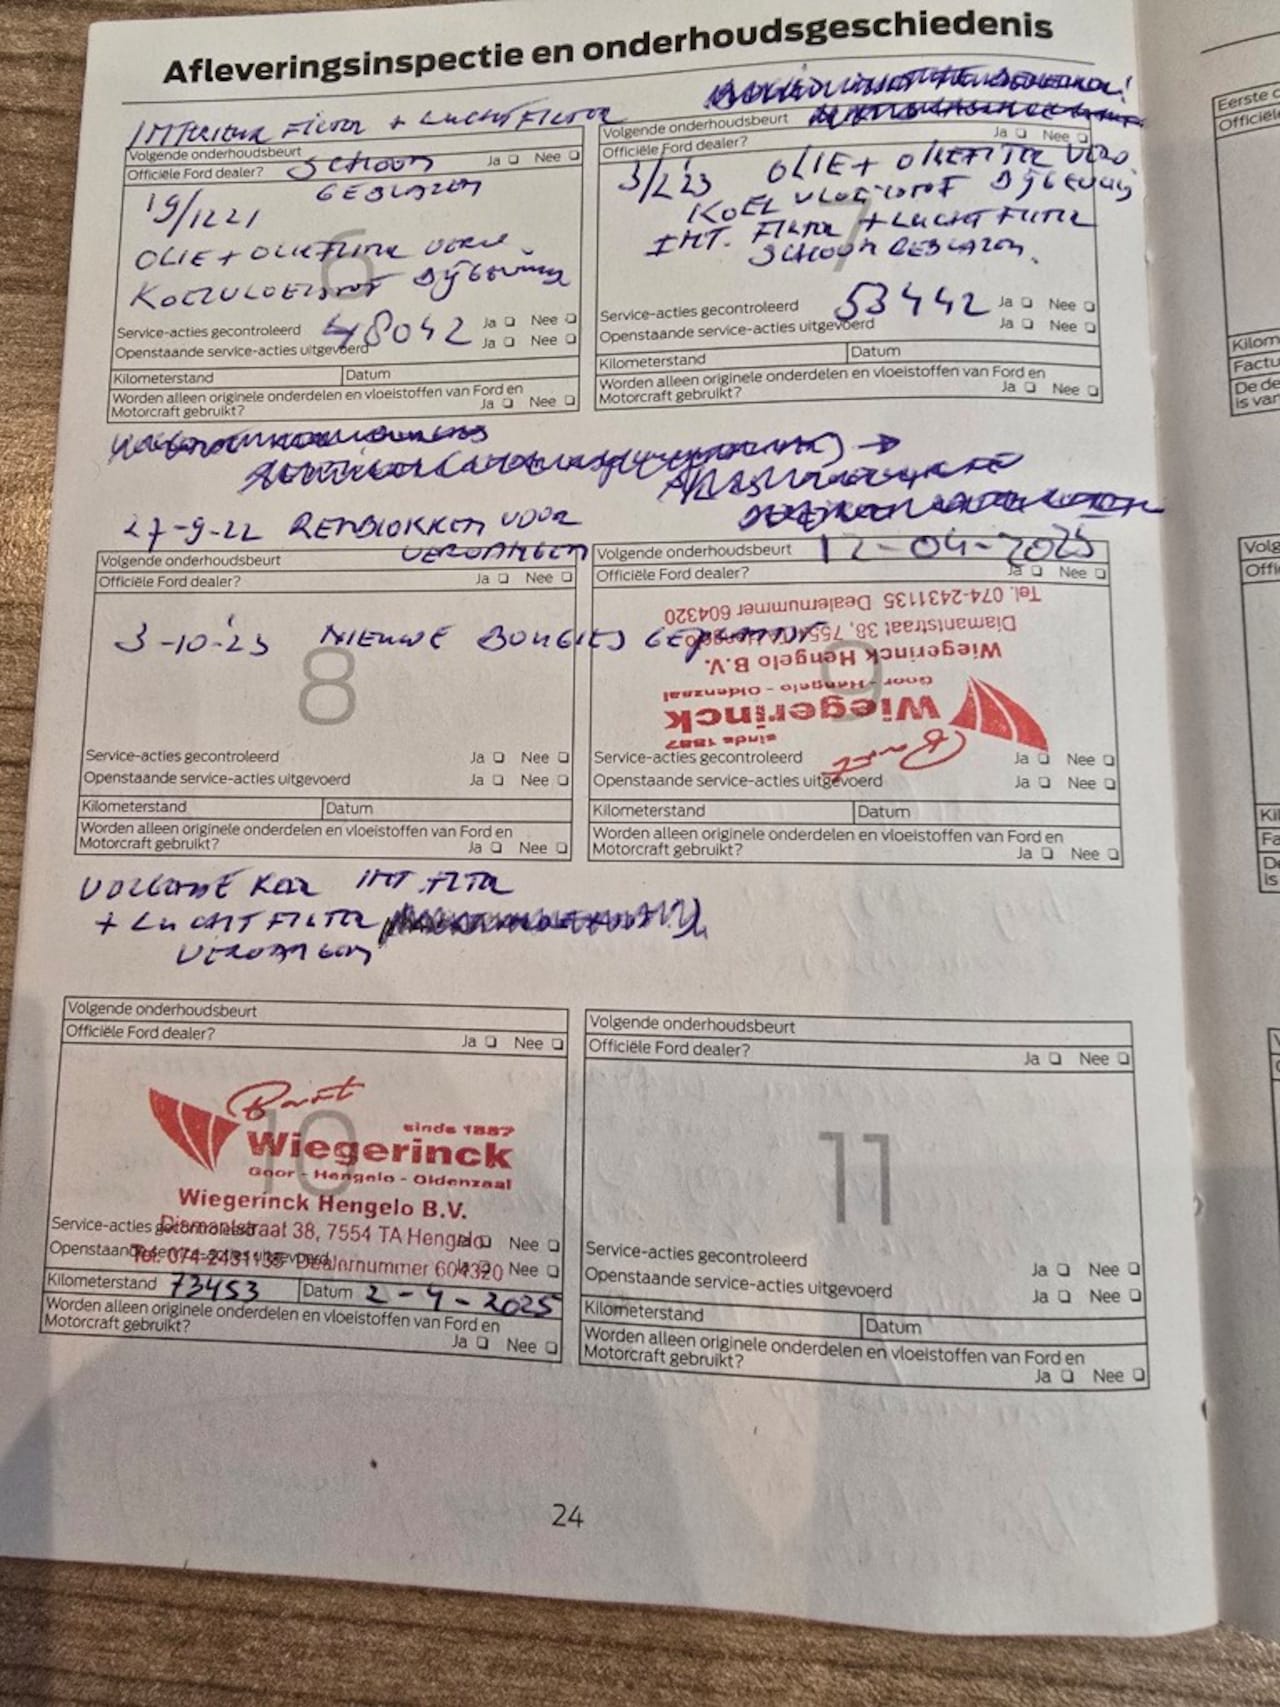 Afleveringsinspectie en onderhoudsgeschiedenis
INTERIEUR FILTER + LUCHTFILTER
Volgende onderhoudsbeurt
SCHOON
Officiële Ford dealer? Ja Nee
GEBLAZEN
19/1221
OLIE + OLIEFILTER VERV.
KOELVLOEISTOF BIJGEVULD
6
Service-acties gecontroleerd Ja Nee
48042
Openstaande service-acties uitgevoerd Ja Nee
Kilometerstand Datum
Worden alleen originele onderdelen en vloeistoffen van Ford en
Motorcraft gebruikt? Ja Nee
Volgende onderhoudsbeurt
Officiële Ford dealer? Ja Nee
3/2'23 OLIE + OLIEFILTER VERV
KOELVLOEISTOF BIJGEVULD
INT. FILTER + LUCHTFILTER
SCHOON GEBLAZEN.
7
Service-acties gecontroleerd 53442 Ja Nee
Openstaande service-acties uitgevoerd Ja Nee
Kilometerstand Datum
Worden alleen originele onderdelen en vloeistoffen van Ford en
Motorcraft gebruikt? Ja Nee
27-9-22 REMBLOKKEN VOOR
VERVANGEN
Volgende onderhoudsbeurt
Officiële Ford dealer? Ja Nee
3-10-'23 NIEUWE BOUGIES GEPLAATST
8
Service-acties gecontroleerd Ja Nee
Openstaande service-acties uitgevoerd Ja Nee
Kilometerstand Datum
Worden alleen originele onderdelen en vloeistoffen van Ford en
Motorcraft gebruikt? Ja Nee
Volgende onderhoudsbeurt 12-04-2025
Officiële Ford dealer? Ja Nee
9
sinds 1887
Wiegerinck
Goor - Hengelo - Oldenzaal
Wiegerinck Hengelo B.V.
Diamantstraat 38, 7554 TA Hengelo
Tel. 074-2431135 Dealernummer 604320
Service-acties gecontroleerd Ja Nee
Openstaande service-acties uitgevoerd Ja Nee
Kilometerstand Datum
Worden alleen originele onderdelen en vloeistoffen van Ford en
Motorcraft gebruikt? Ja Nee
VOLGENDE KEER INT. FILTER
+ LUCHTFILTER
VERVANGEN
Volgende onderhoudsbeurt
Officiële Ford dealer? Ja Nee
10
sinds 1887
Wiegerinck
Goor - Hengelo - Oldenzaal
Wiegerinck Hengelo B.V.
Diamantstraat 38, 7554 TA Hengelo
Tel. 074-2431135 Dealernummer 604320
Service-acties gecontroleerd Ja Nee
Openstaande service-acties uitgevoerd Ja Nee
Kilometerstand 73453 Datum 2-4-2025
Worden alleen originele onderdelen en vloeistoffen van Ford en
Motorcraft gebruikt? Ja Nee
Volgende onderhoudsbeurt
Officiële Ford dealer? Ja Nee
11
Service-acties gecontroleerd Ja Nee
Openstaande service-acties uitgevoerd Ja Nee
Kilometerstand Datum
Worden alleen originele onderdelen en vloeistoffen van Ford en
Motorcraft gebruikt? Ja Nee
24